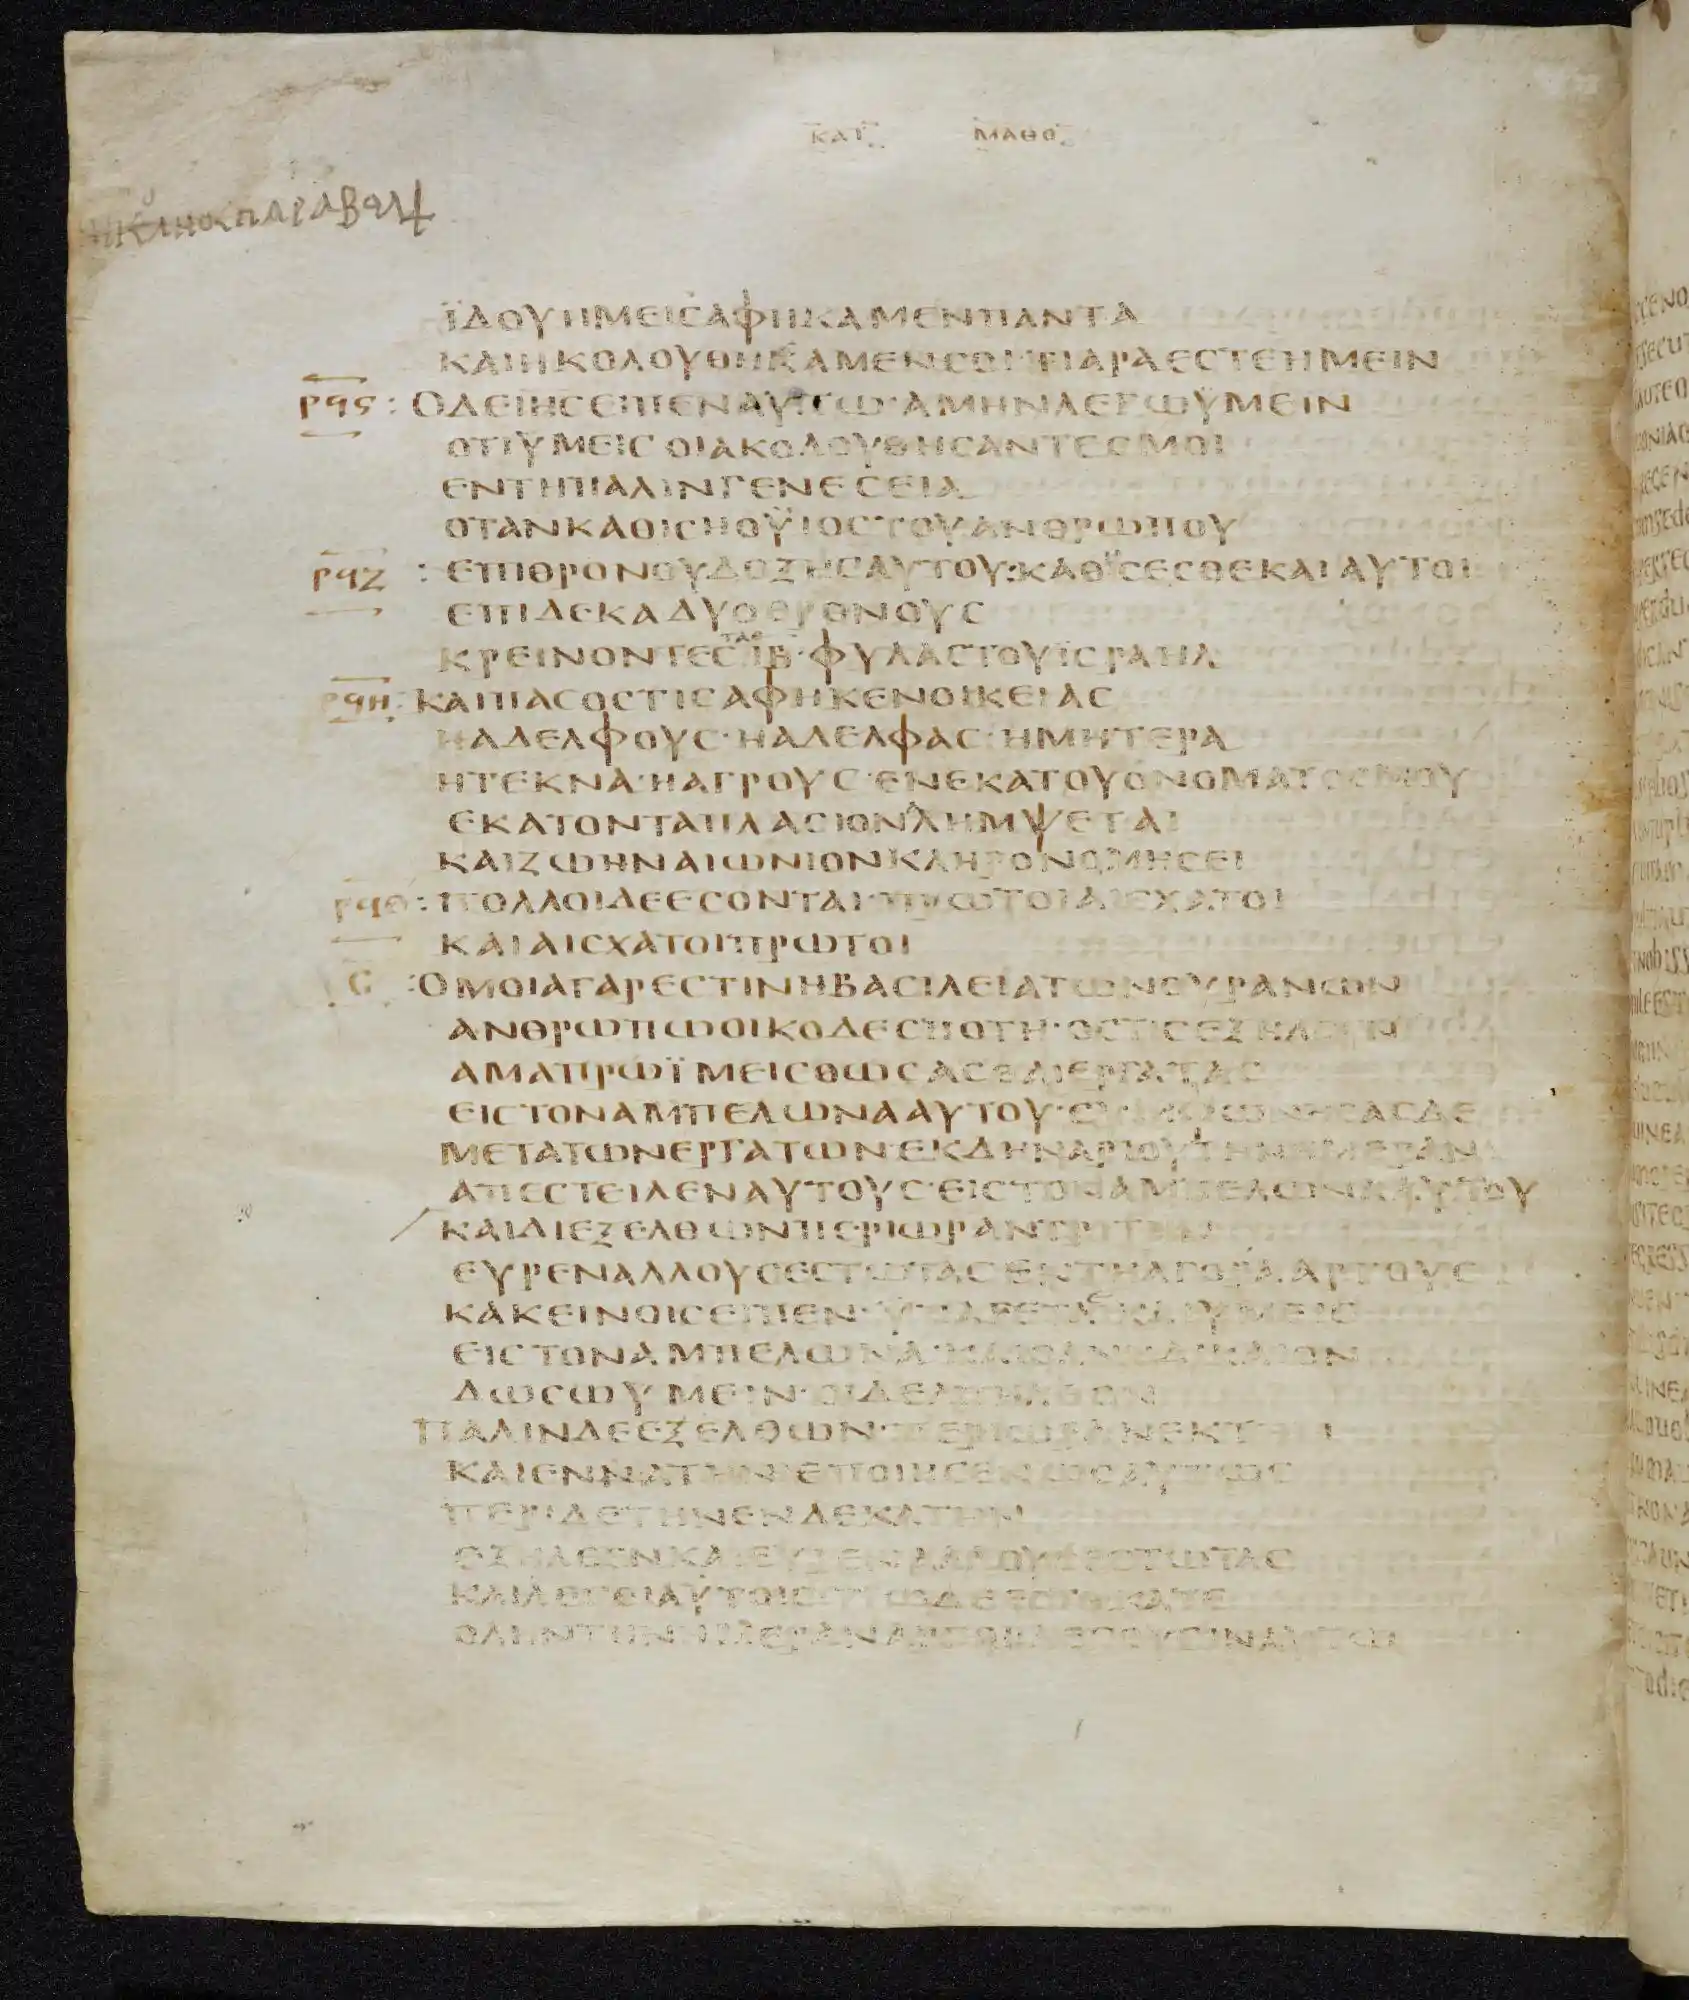 ΚΑΤ ΜΑΘΘ
ΪΔΟΥΗΜΕΙΣΑΦΗΚΑΜΕΝΠΑΝΤΑ
ΚΑΙΗΚΟΛΟΥΘΗΚΑΜΕΝΣΟΙ·ΤΙΑΡΑΕΣΤΕΗΜΕΙΝ
ΡϤϚ : ΟΔΕΙΗΣΕΙΠΕΝΑΥΤΩ·ΑΜΗΝΛΕΓΩΫΜΕΙΝ
ΟΤΙΫΜΕΙΣ ΟΙΑΚΟΛΟΥΘΗΣΑΝΤΕΣΜΟΙ
ΕΝΤΗΠΑΛΙΝΓΕΝΕΣΕΙΑ
ΟΤΑΝΚΑΘΙΣΗΟΫΙΟΣΤΟΥΑΝΘΡΩΠΟΥ
ΡϤΖ : ΕΠΙΘΡΟΝΟΥΔΟΞΗΣΑΥΤΟΥ:ΚΑΘΙΣΕΣΘΕΚΑΙΑΥΤΟΙ
ΕΠΙΔΕΚΑΔΥΟΘΡΟΝΟΥΣ
ΚΡΕΙΝΟΝΤΕΣΤΑΣΙΒ·ΦΥΛΑΣΤΟΥΪΣΡΑΗΛ
ΡϤΗ : ΚΑΙΠΑΣΟΣΤΙΣΑΦΗΚΕΝΟΙΚΕΙΑΣ
ΗΑΔΕΛΦΟΥΣ·ΗΑΔΕΛΦΑΣ·ΗΜΗΤΕΡΑ
ΗΤΕΚΝΑ·ΗΑΓΡΟΥΣ·ΕΝΕΚΑΤΟΥΟΝΟΜΑΤΟΣΜΟΥ
ΕΚΑΤΟΝΤΑΠΛΑΣΙΟΝΑΛΗΜΨΕΤΑΙ
ΚΑΙΖΩΗΝΑΙΩΝΙΟΝΚΛΗΡΟΝΟΜΗΣΕΙ
ΡϤΘ : ΠΟΛΛΟΙΔΕΕΣΟΝΤΑΙ·ΠΡΩΤΟΙΑΙΣΧΑΤΟΙ
ΚΑΙΑΙΣΧΑΤΟΙΠΡΩΤΟΙ
Σ : ΟΜΟΙΑΓΑΡΕΣΤΙΝΗΒΑΣΙΛΕΙΑΤΩΝΟΥΡΑΝΩΝ
ΑΝΘΡΩΠΩΟΙΚΟΔΕΣΠΟΤΗ·ΟΣΤΙΣΕΞΗΛΘΕΝ
ΑΜΑΠΡΩΪΜΕΙΣΘΩΣΑΣΘΑΙΕΡΓΑΤΑΣ
ΕΙΣΤΟΝΑΜΠΕΛΩΝΑΑΥΤΟΥ·ΣΥΝΦΩΝΗΣΑΣΔΕ
ΜΕΤΑΤΩΝΕΡΓΑΤΩΝ·ΕΚΔΗΝΑΡΙΟΥΤΗΝΗΜΕΡΑΝ
ΑΠΕΣΤΕΙΛΕΝΑΥΤΟΥΣ·ΕΙΣΤΟΝΑΜΠΕΛΩΝΑΑΥΤΟΥ
ΚΑΙΔΙΕΞΕΛΘΩΝΠΕΡΙΩΡΑΝ
ΕΥΡΕΝΑΛΛΟΥΣΕΣΤΩΤΑΣΕΝΤΗΑΓΟΡΑ·ΑΡΓΟΥΣ
ΚΑΚΕΙΝΟΙΣΕΙΠΕΝ·ΥΠΑΓΕΤΕΚΑΙΥΜΕΙΣ
ΕΙΣΤΟΝΑΜΠΕΛΩΝΑ·ΚΑΙΟΑΝΗΔΙΚΑΙΟΝ
ΔΩΣΩΥΜΕΙΝ·ΟΙΔΕΑΠΗΛΘΟΝ
ΠΑΛΙΝΔΕΕΞΕΛΘΩΝ·ΠΕΡΙΩΡΑΝΕΚΤΗΝ
ΚΑΙΕΝΝΑΤΗΝΕΠΟΙΗΣΕΝΩΣΑΥΤΩΣ
ΠΕΡΙΔΕΤΗΝΕΝΔΕΚΑΤΗΝ
ΕΞΗΛΘΕΝΚΑΙΕΥΡΕΝΑΛΛΟΥΣΕΣΤΩΤΑΣ
ΚΑΙΛΕΓΕΙΑΥΤΟΙΣΤΙΩΔΕΕΣΤΗΚΑΤΕ
ΟΛΗΝΤΗΝΗΜΕΡΑΝΑΡΓΟΙΛΕΓΟΥΣΙΝΑΥΤΩ